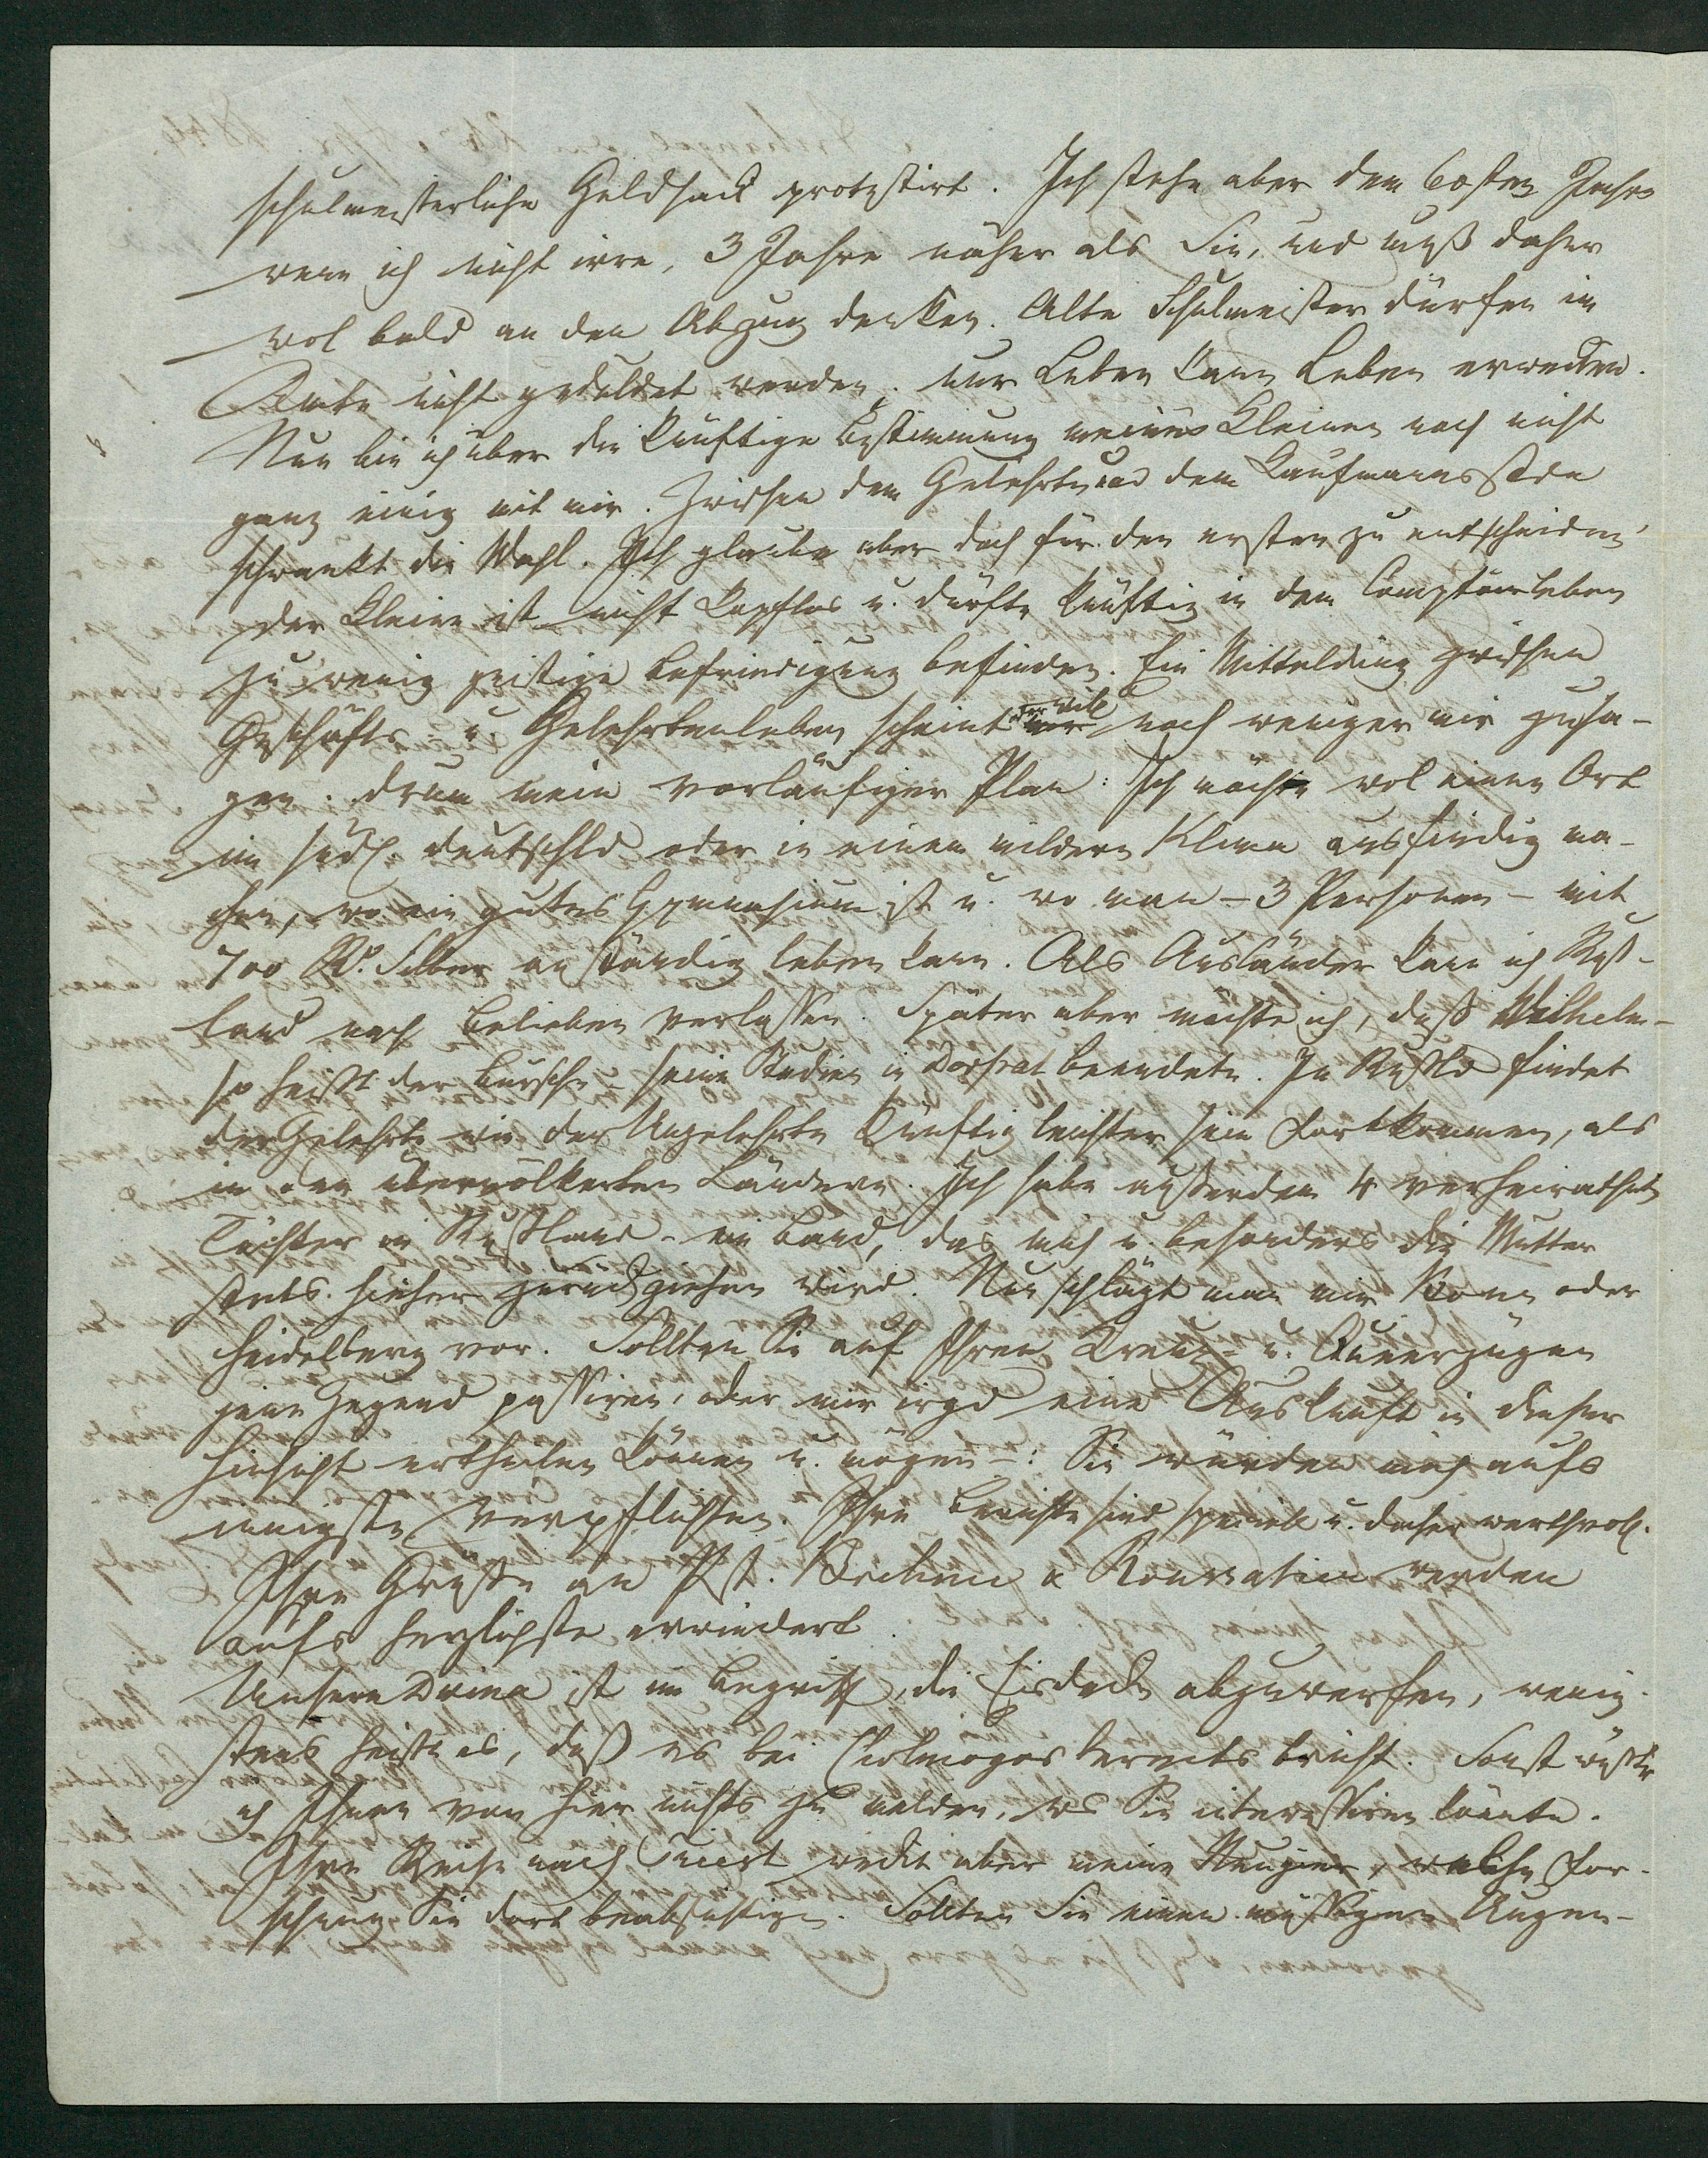 schulmeisterliche Geldsack protestirt. Ich stehe aber dem 60sten Jahre
wenn ich nicht irre, 3 Jahre näher als Sie, und muß daher
wol bald an den Abzug denken. Alte Schulmeister dürfen im
Amte nicht geduldet werden; nur Leben kann Leben erwecken.
Nun bin ich über die künftige Bestimmung meines Kleinen noch nicht
ganz einig mit mir. Zwischen dem Gelehrten und dem Kaufmannsstde
schwankt die Wahl. Ich glaube aber doch für den ersten zu entscheiden,
der Kleine ist nicht kopflos u. dürfte künftig in dem Comptoirleben
zu wenig geistige Befriedigung befinden. Ein Mittelding zwischen
Geschäfts- u. Gelehrtenleben scheint noch weniger mir zusa-
gen. Drum mein vorläufiger Plan: Ich möchte wol einen Ort
im südl. Deutschld oder in einem mildern Klima ausfindig ma-
chen, wo ein gutes Gymnasium ist u. wo man – 3 Personen – mit
700 R. Silber anständig leben kann. Als Ausländer kann ich Ruß-
land nach Belieben verlassen. Später aber möchte ich, daß Wilhelm –
so heißt der Bursche – seine Studien in Dorpat beendete. In Rußld findet
der Gelehrte wie der Ungelehrte künftig leichter sein Fortkommen, als
in den übervölkerten Ländern. Ich habe außerdem 4 verheirathete
Töchter in Rußland – ein Band, das mich u. besonders die Mutter
stets hieher zurückziehen wird. Nun schlägt man mir Bonn oder
Heidelberg vor. Sollten Sie auf Ihren Kreuz- u. Querzügen
jene Gegend passiren, oder mir irgd eine Auskunft in dieser
Hinsicht ertheilen können u. mögen –: Sie würden mich aufs
innigste verpflichten. Ihre Berichte sind speciell u. daher werthvoll.
Ihre Grüße an Pst. & werden
aufs herzlichste erwiedert.
Unsere Dwina ist im Begriff, die Eisdecke abzuwerfen, wenig-
stens heißt es, daß es bei Cholmogor bereits bricht. Sonst wüßte
ich Ihnen von hier nichts zu melden, was Sie interessiren könnte.
Ihre Reise nach Triest weckt aber meine Neugier, welche For-
schung Sie dort beabsichtigen. Sollten Sie einen müßigen Augen-